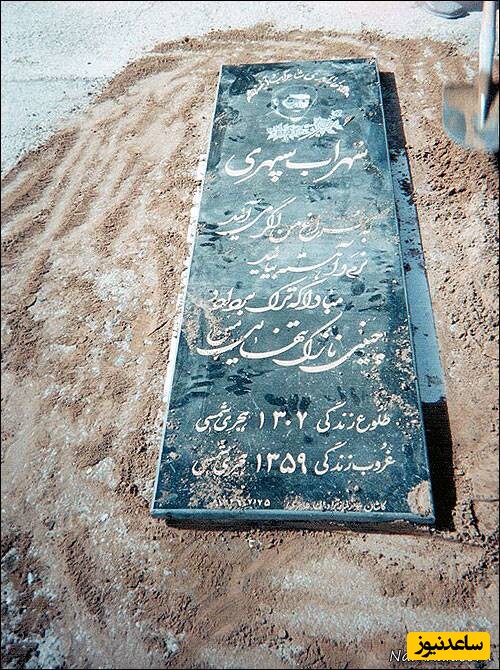 سهراب سپهری
به سراغ من اگر می آیید
نرم و آهسته بیایید
مبادا که ترک بردارد
چینی نازک تنهایی من
طلوع زندگی ۱۳۰۷ هجری شمسی
غروب زندگی ۱۳۵۹ هجری شمسی
کاشان
ساعدنیوز